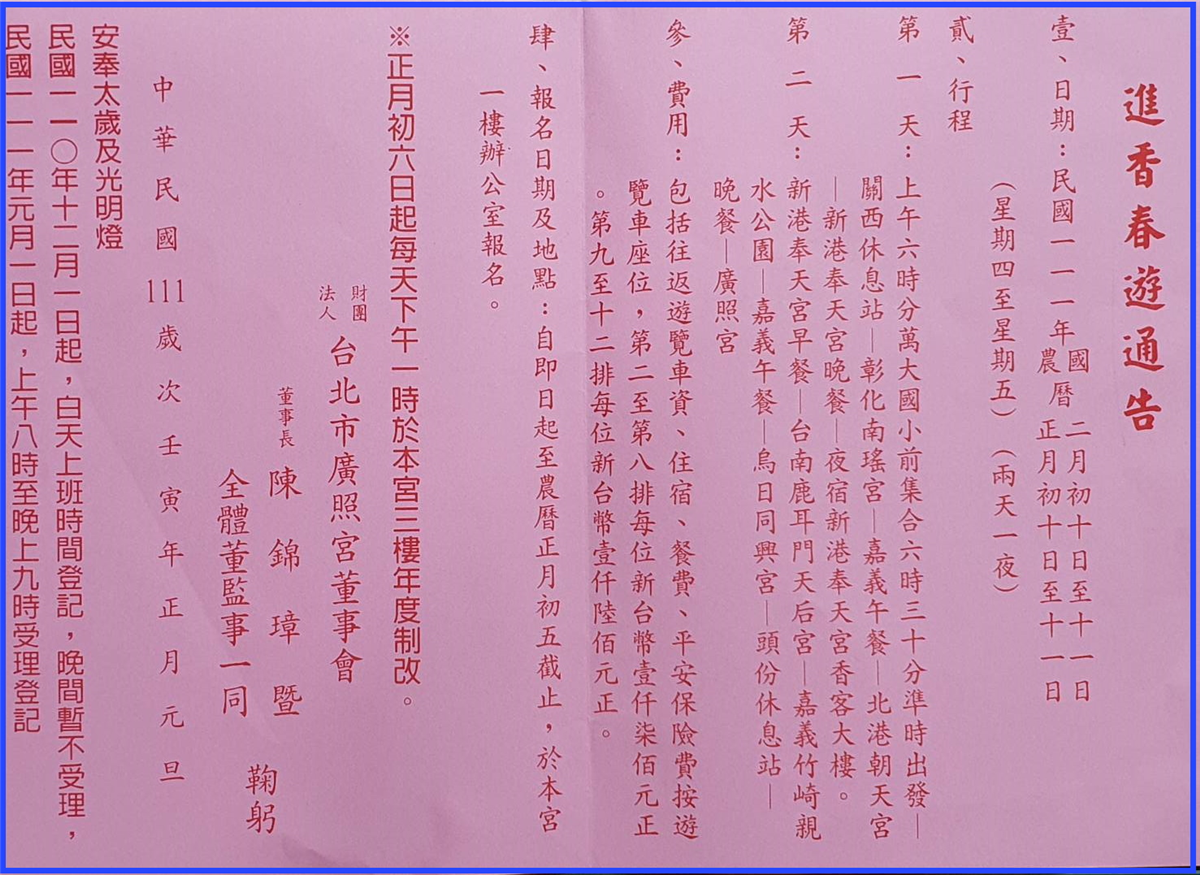 進香春遊通告
壹、日期：民國一一一年國曆二月初十日至十一日
農曆正月初十日至十一日
（星期四至星期五）（兩天一夜）
貳、行程
第一天：上午六時分萬大國小前集合六時三十分準時出發—
關西休息站—彰化南瑤宮—嘉義午餐—北港朝天宮
—新港奉天宮晚餐—夜宿新港奉天宮香客大樓。
第二天：新港奉天宮早餐—台南鹿耳門天后宮—嘉義竹崎親
水公園—嘉義午餐—烏日同興宮—頭份休息站—
晚餐—廣照宮
參、費用：包括往返遊覽車資、住宿、餐費、平安保險費按遊
覽車座位，第二至第八排每位新台幣壹仟柒佰元正
。第九至十二排每位新台幣壹仟陸佰元正。
肆、報名日期及地點：自即日起至農曆正月初五截止，於本宮
一樓辦公室報名。
※正月初六日起每天下午一時於本宮三樓年度制改。
財團法人台北市廣照宮董事會
董事長陳錦璋暨
全體董監事一同
鞠躬
中華民國111歲次壬寅年正月元旦
安奉太歲及光明燈
民國一一〇年十二月一日起，白天上班時間登記，晚間暫不受理，
民國一一一年元月一日起，上午八時至晚上九時受理登記